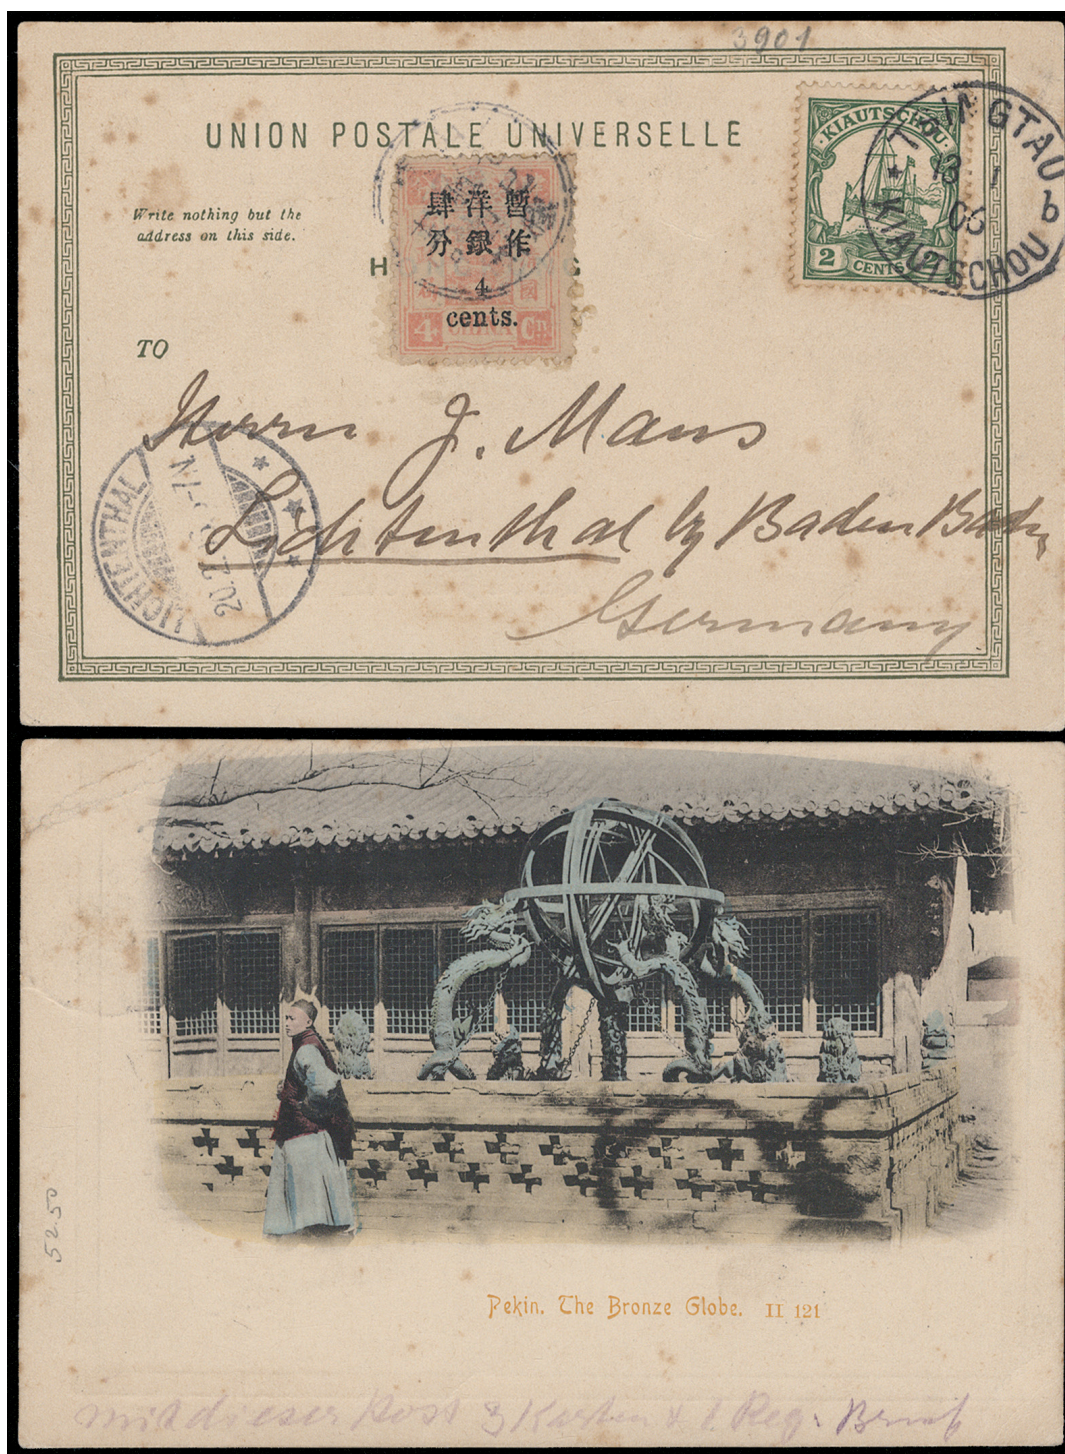 3901
UNION POSTALE UNIVERSELLE
Write nothing but the
address on this side.
暫作
洋銀
肆分
4
cents.
4 CHINA Cn
KIAUTSCHOU
2 CENTS 2
TSINGTAU
13 1
06
b
KIAUTSCHOU
TO
Herrn J. Maus
Lichtenthal b/ Baden Baden
Germany
LICHTENTHAL
20.2.
5250
Pekin. The Bronze Globe. II 121
mit dieser Post 3 Karten & 1 Reg. Brief